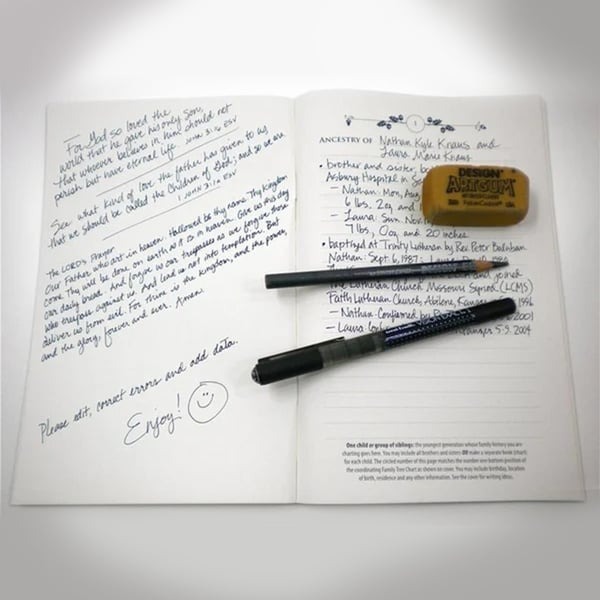 For God so loved the
world that he gave his only Son,
that whoever believes in him should not
perish but have eternal life. JOHN 3:16 ESV
See what kind of love the Father has given to us
that we should be called the children of God; and so we are.
1 JOHN 3:1a ESV
The LORD'S Prayer
Our Father who art in heaven. Hallowed be thy name. Thy Kingdom
come. Thy will be done on earth as it is in heaven. Give us this day
our daily bread. And forgive us our trespasses as we forgive those
who trespass against us. And lead us not into temptation. But
deliver us from evil. For thine is the kingdom, and the power,
and the glory, forever and ever. Amen.
Please edit, correct errors and add data.
Enjoy!
1
ANCESTRY OF Nathan Kyle Knaus and
Laura Marie Knaus
• brother and sister, b
Asbury Hospital in S
- Nathan: Mon, Aug
6 lbs. 2oz and
- Laura: Sun. Nov
7 lbs, 0oz and 20 inches.
• baptized at Trinity Lutheran by Rev. Peter
Nathan: Sept. 6, 1987;
and joined
The Lutheran Church Missouri Synod (LCMS)
Faith Lutheran Church, Abilene, Kansas 1996
- Nathan-Confirmed by 2001
- Laura 5.9.2004
DESIGN
ARTGUM
Faber-Castell
USA
One child or group of siblings: the youngest generation whose family history you are
charting goes here. You may include all brothers and sisters OR make a separate book (chart)
for each child. The circled number of this page matches the number one bottom position of
the coordinating Family Tree Chart as shown on cover. You may include birthday, location
of birth, residence and any other information. See the cover for writing ideas.